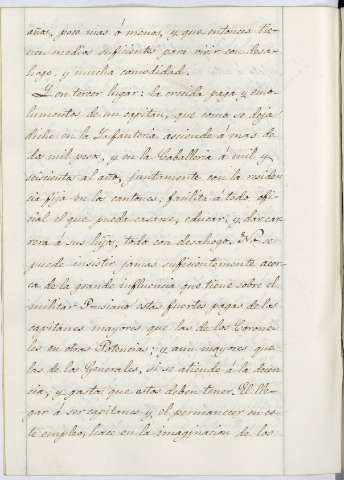 años, poco mas ó menos, y que entonces tie-
nen medios suficientes para vivir con desa-
hogo, y mucha comodidad.
Y en tercer lugar: la crecida paga y emo-
lumentos de un capitan, que como se deja
dicho en la Infanteria asciende á mas de
dos mil pesos, y en la Caballeria á mil y
seiscientos al año, juntamente con la residen-
cia fija en los cantones; facilita á todo ofi-
cial el que pueda casarse, educar, y dar car-
rera á sus hijos, todo con desahogo. No se
puede insistir jamas suficientemente acer-
ca de la grande influencia que tiene sobre el
militar Prusiano estas fuertes pagas de los
capitanes mayores que las de los Corone-
les en otras Potencias; y aun mayores que
las de los Generales, si se atiende á la decen-
cia, y gasto que estos deben tener. El lle-
gar á ser capitanes y el permanecer en es-
te empleo, hace en la imaginacion de los